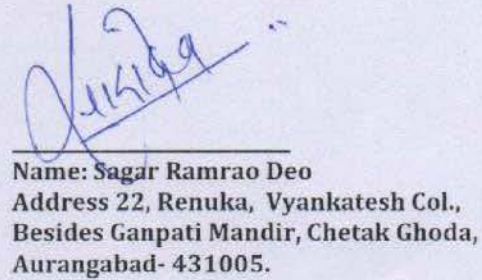 Name: Sagar Ramrao Deo
Address 22, Renuka, Vyankatesh Col.,
Besides Ganpati Mandir, Chetak Ghoda,
Aurangabad- 431005.